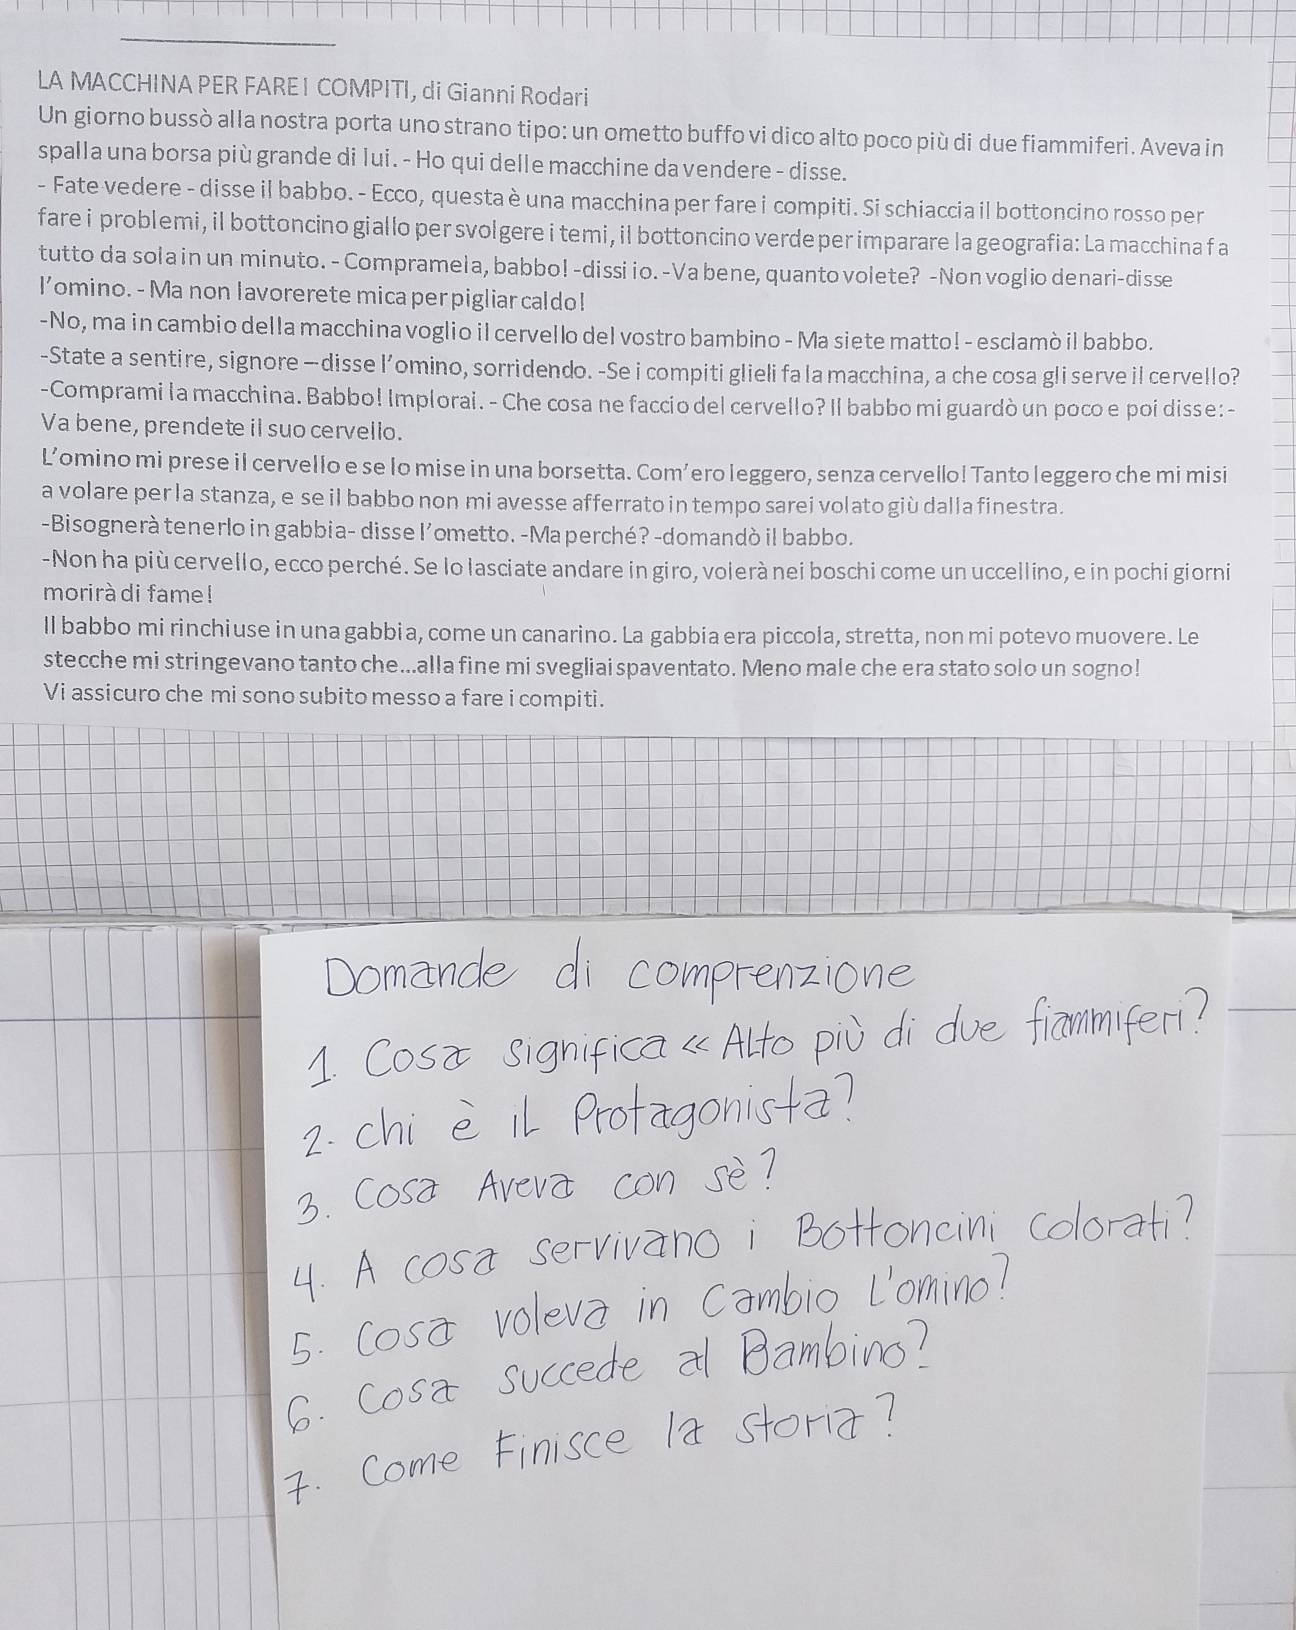 LA MACCHINA PER FARE I COMPITI, di Gianni Rodari
Un giorno bussò alla nostra porta uno strano tipo: un ometto buffo vi dico alto poco più di due fiammiferi. Aveva in
spalla una borsa più grande di lui. - Ho qui delle macchine da vendere - disse.
- Fate vedere - disse il babbo. - Ecco, questa è una macchina per fare i compiti. Si schiaccia il bottoncino rosso per
fare i problemi, il bottoncino giallo per svolgere i temi, il bottoncino verde per imparare la geografia: La macchina fa
tutto da sola in un minuto. - Compramela, babbo! -dissi io. -Va bene, quanto volete? -Non voglio denari-disse
l'omino. - Ma non lavorerete mica per pigliar caldo!
-No, ma in cambio della macchina voglio il cervello del vostro bambino - Ma siete matto! - esclamò il babbo.
-State a sentire, signore – disse l'omino, sorridendo. -Se i compiti glieli fa la macchina, a che cosa gli serve il cervello?
-Comprami la macchina. Babbo! Implorai. - Che cosa ne faccio del cervello? Il babbo mi guardò un poco e poi disse: -
Va bene, prendete il suo cervello.
L'omino mi prese il cervello e se lo mise in una borsetta. Com'ero leggero, senza cervello! Tanto leggero che mi misi
a volare per la stanza, e se il babbo non mi avesse afferrato in tempo sarei volato giù dalla finestra.
-Bisognerà tenerlo in gabbia- disse l'ometto. -Ma perché? -domandò il babbo.
-Non ha più cervello, ecco perché. Se lo lasciate andare in giro, volerà nei boschi come un uccellino, e in pochi giorni
morirà di fame!
Il babbo mi rinchiuse in una gabbia, come un canarino. La gabbia era piccola, stretta, non mi potevo muovere. Le
stecche mi stringevano tanto che...alla fine mi svegliai spaventato. Meno male che era stato solo un sogno!
Vi assicuro che mi sono subito messo a fare i compiti.
Domande di comprenzione
1. Cosa significa « Alto più di due fiammiferi?
2. chi è il Protagonista?
3. Cosa Aveva con sè?
4. A cosa servivano i Bottoncini colorati?
5. Cosa voleva in Cambio L'omino?
6. Cosa succede al Bambino?
7. Come Finisce la storia?